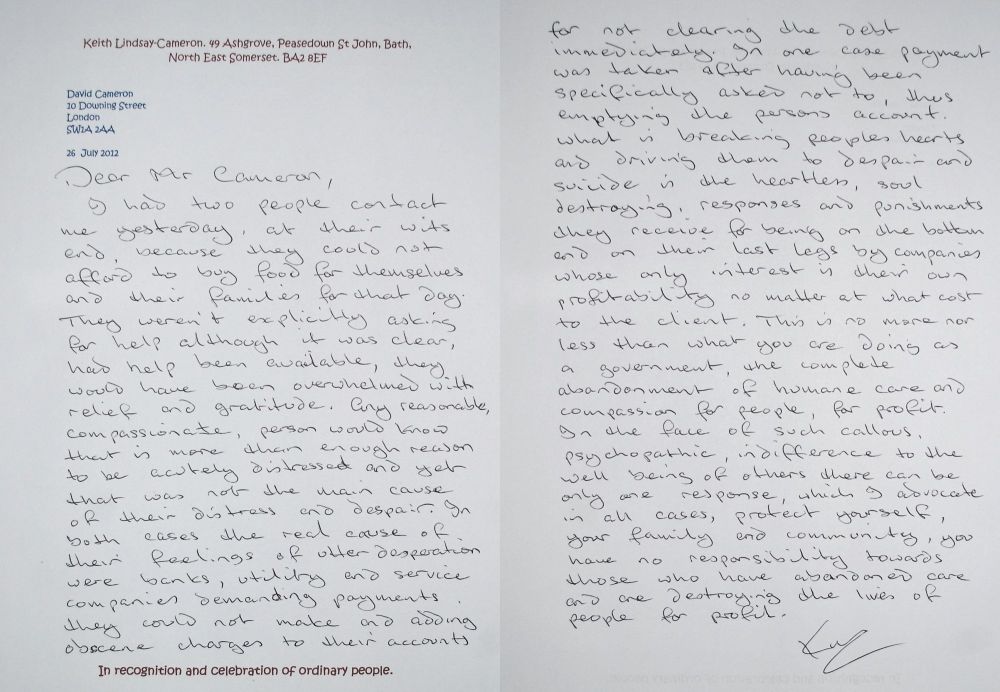 Keith Lindsay-Cameron. 49 Ashgrove, Peasedown St John, Bath,
North East Somerset. BA2 8EF
David Cameron
10 Downing Street
London
SW1A 2AA
26 July 2012
Dear Mr Cameron,
I had two people contact
me yesterday, at their wits
end, because they could not
afford to buy food for themselves
and their families for that day.
They weren't explicitly asking
for help although it was clear,
had help been available, they
would have been overwhelmed with
relief and gratitude. Any reasonable,
compassionate, person would know
that is more than enough reason
to be acutely distressed and yet
that was not the main cause
of their distress and despair. In
both cases the real cause of
their feelings of utter desperation
were banks, utility and service
companies demanding payments
they could not make and adding
obscene charges to their accounts
In recognition and celebration of ordinary people.
for not clearing the debt
immediately. In one case payment
was taken after having been
specifically asked not to, thus
emptying the persons account.
What is breaking peoples hearts
and driving them to despair and
suicide is the heartless, soul
destroying, responses and punishments
they receive for being on the bottom
and on their last legs by companies
whose only interest is their own
profitability no matter at what cost
to the client. This is no more nor
less than what you are doing as
a government, the complete
abandonment of humane care and
compassion for people, for profit.
In the face of such callous,
psychopathic, indifference to the
well being of others there can be
only one response, which I advocate
in all cases, protect yourself,
your family and community, you
have no responsibility towards
those who have abandoned care
and are destroying the lives of
people for profit.